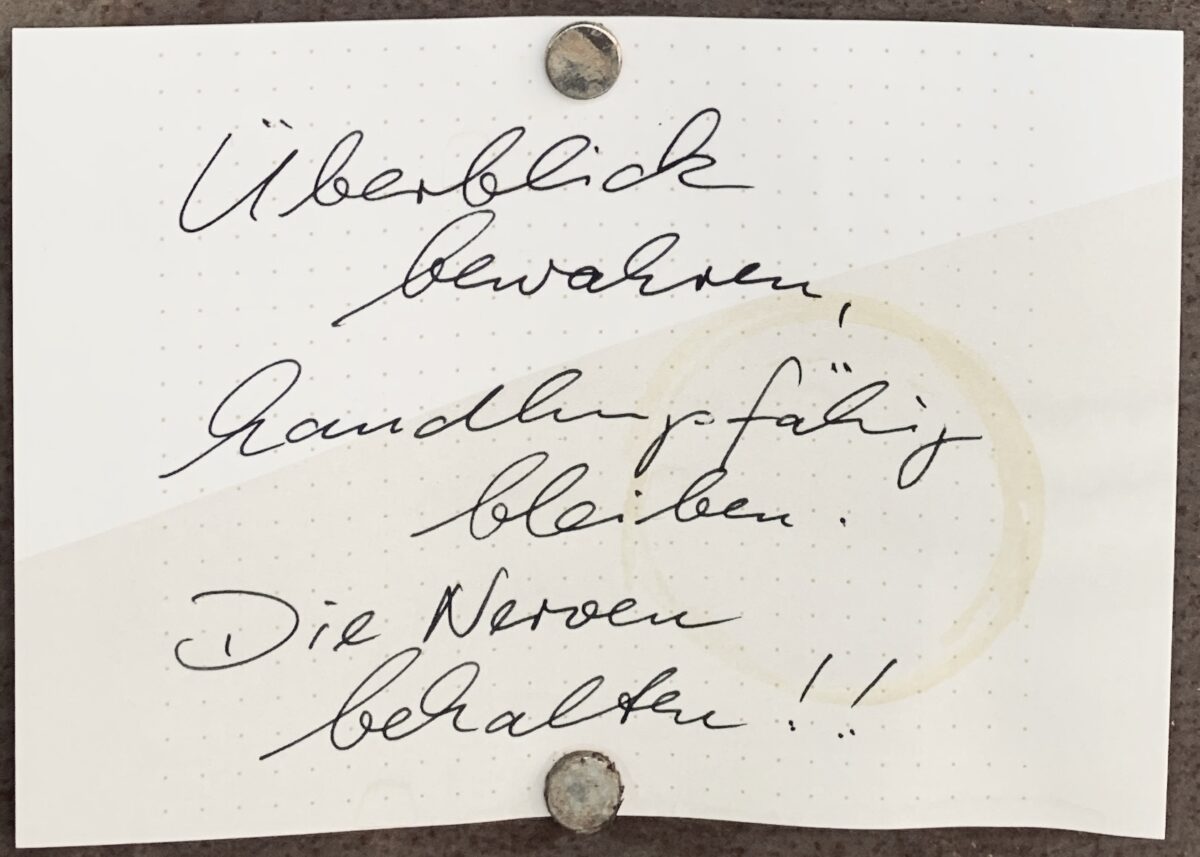 Überblick
bewahren,
handlungsfähig
bleiben.
Die Nerven
behalten!!